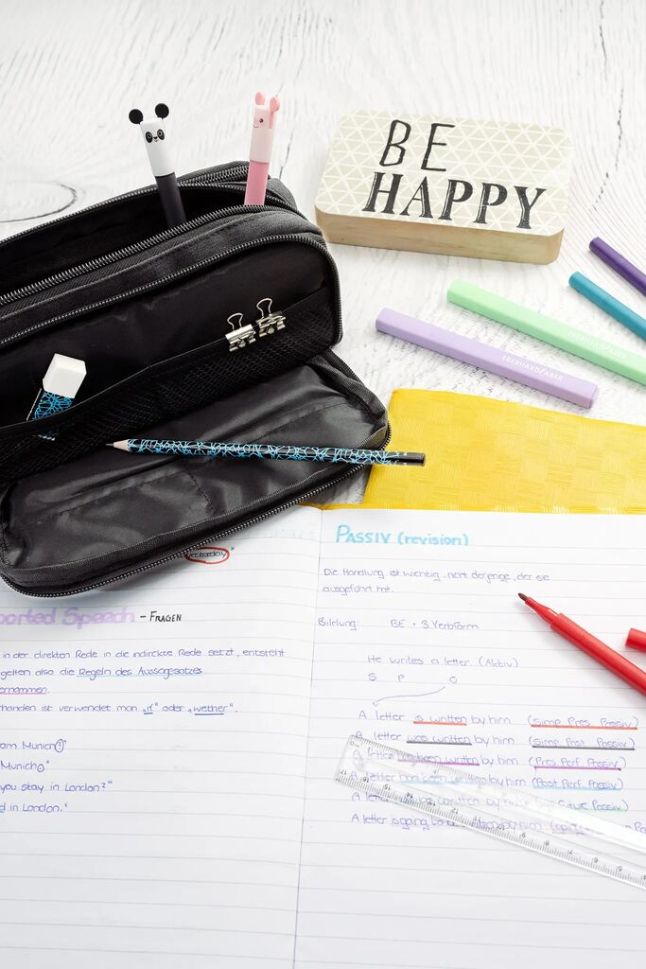 BE
HAPPY
EBERHARD FABER
PASSIV (revision)
Die Handlung ist wichtig, nicht derjenige, der sie
ausgeführt hat.
Bildung: BE + 3 Verbform
He writes a letter. (Aktiv)
S P O
A letter is written by him (Simp Pres Passiv)
A letter was written by him (Simp Past Passiv)
A letter has been written by him (Pres Perf Passiv)
A letter had been written by him (Past Perf Passiv)
A letter will be written by him
A letter is going to be
orted Speech - FRAGEN
in der direkten Rede in die indirekte Rede setzt, entsteht
gelten also die Regeln des Aussagesatzes
ernommen.
handen ist verwendet man "if" oder "wether".
am Munich
Munich
you stay in London?"
d in London.'